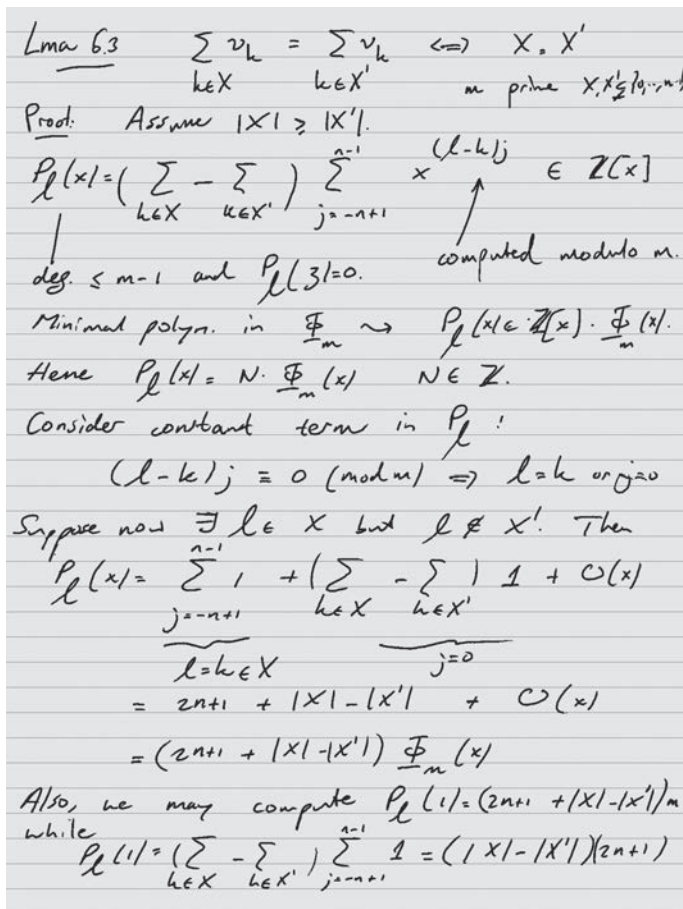 Lma 6.3 ∑_{k∈X} v_k = ∑_{k∈X'} v_k <=> X = X'
m prime X, X' ⊊ {0,..,n-1}
Proof: Assume |X| ≥ |X'|.
P_l(x) = ( ∑_{k∈X} - ∑_{k∈X'} ) ∑_{j=-n+1}^{n-1} x^{(l-k)j} ∈ Z[x]
computed modulo m.
deg. ≤ m-1 and P_l(ζ)=0.
Minimal polyn. in Φ_m ⇝ P_l(x) ∈ Z[x] · Φ_m(x).
Hene P_l(x) = N · Φ_m(x) N ∈ Z.
Consider constant term in P_l :
(l-k)j ≡ 0 (mod m) => l=k or j=0
Suppose now ∃ l ∈ X but l ∉ X'. Then
P_l(x) = ∑_{j=-n+1}^{n-1} 1 + ( ∑_{k∈X} - ∑_{k∈X'} ) 1 + O(x)
l=k∈X j=0
= 2n+1 + |X| - |X'| + O(x)
= (2n+1 + |X| - |X'|) Φ_m(x)
Also, we may compute P_l(1) = (2n+1 + |X| - |X'|)m
while
P_l(1) = ( ∑_{k∈X} - ∑_{k∈X'} ) ∑_{j=-n+1}^{n-1} 1 = (|X| - |X'|)(2n+1)